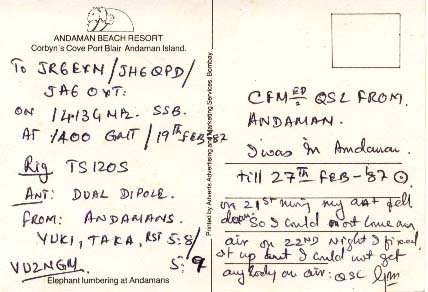 ANDAMAN BEACH RESORT
Corbyn's Cove Port Blair Andaman Island.
TO JR6EXN/JH6QPD/
JA6OXT:
ON 14134 SSB.
AT 1400 GMT/19TH FEB-87
Rig TS120S
ANT: DUAL DIPOLE.
FROM: ANDAMANS.
YUKI, TAKA, RST 5:8/
5:9
VU2NGM
Elephant lumbering at Andamans
Printed by Adverts Advertising and Marketing Services, Bombay.
CFM ED = QSL FROM.
ANDAMAN.
I was In Andaman.
till 27TH FEB-'87
on 21ST my ant fell
down So I could not come on
air on 22ND Night I fixed
it up but I could not get
anybody on air: QSL